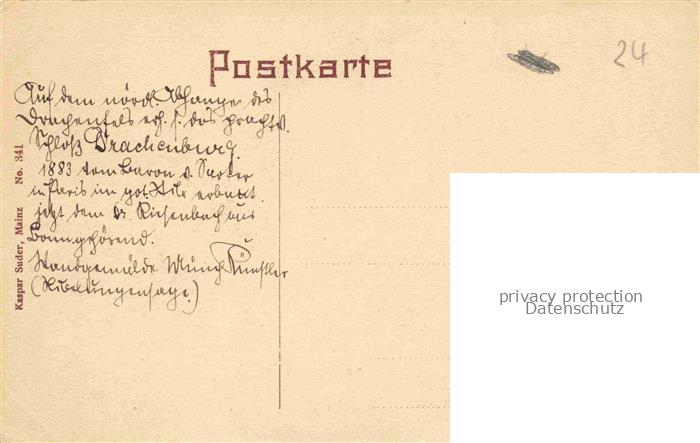 Postkarte
24
Auf dem nördl. Abhange des
Drachenfels erh. s. das prachtv.
Schloß Drachenburg.
1883 vom Baron v. Sarter
in Paris im got. Stile erbaut.
jetzt dem Dr. Riesenbach aus
Bonn gehörend.
Wandgemälde Münch. Künstler
(Nibelungensage.)
Kaspar Suder, Mainz No. 341
privacy protection
Datenschutz